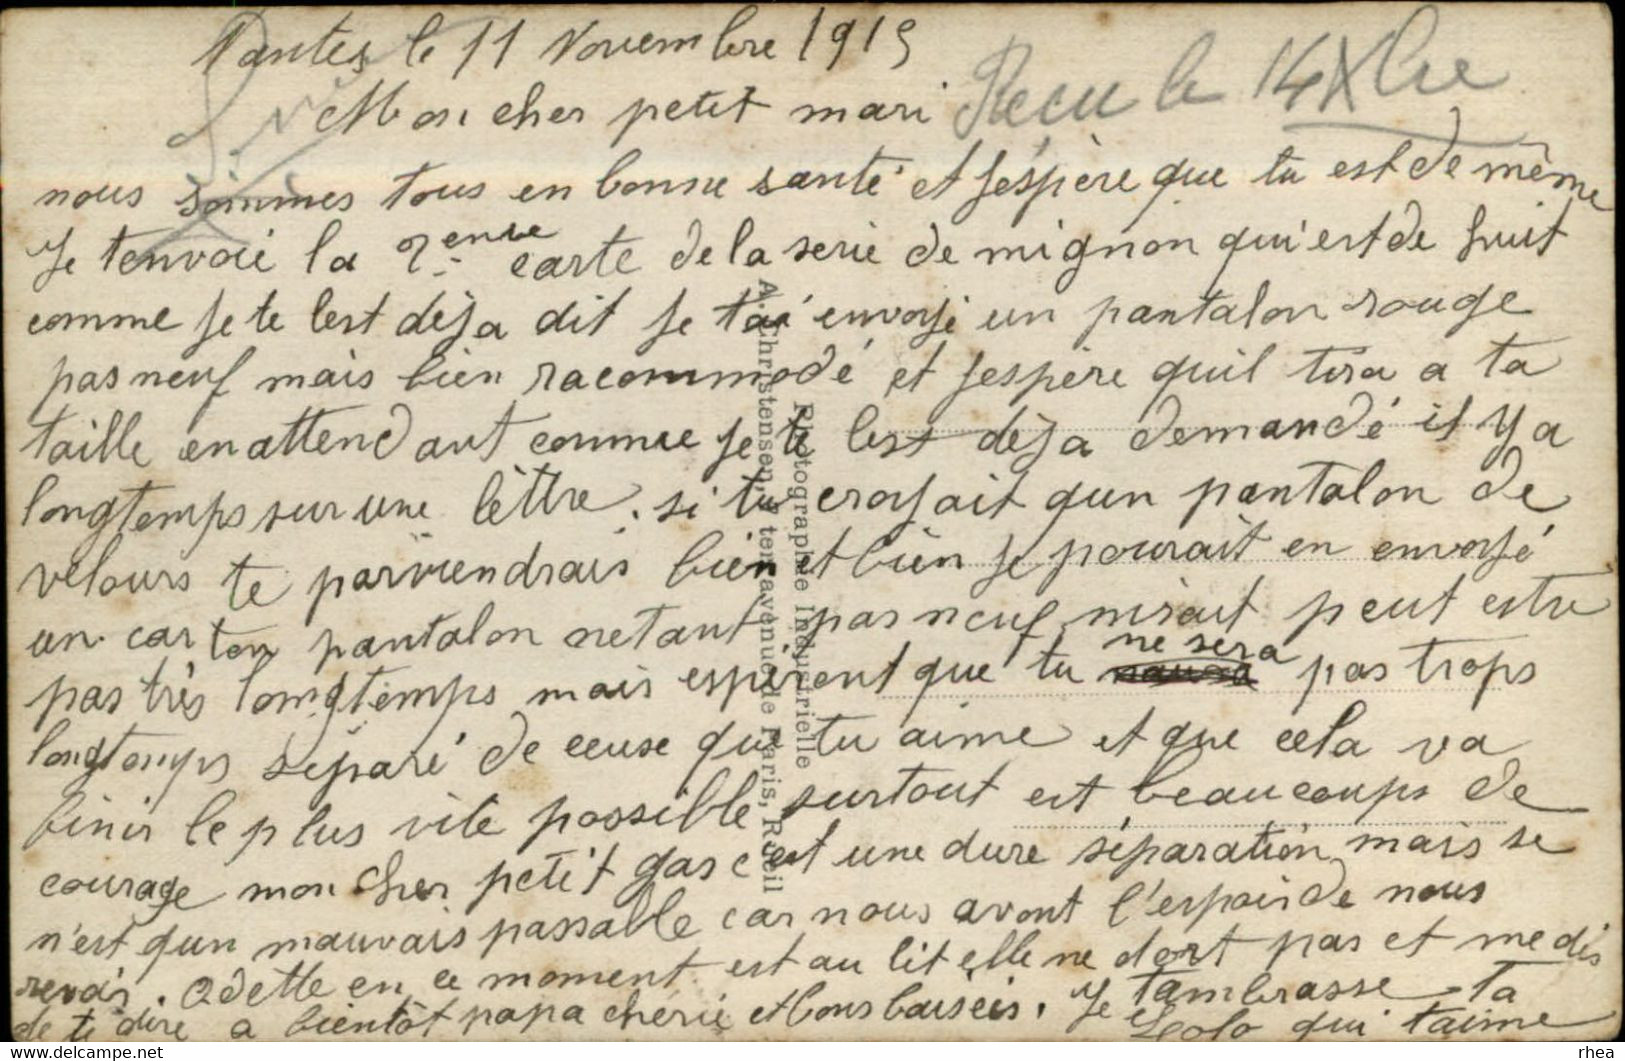 Nantes le 11 Novembre 1915
Mon cher petit mari
Recu le 14 Xbre
nous sommes tous en bonne santé et jespère que tu est de même
Je tenvoie la 2 eme carte de la serie de mignon qui est de huit
comme je te lest dèja dit je tai envoyé un pantalon rouge
pas neuf mais bien racommodé et jespère quil tira a ta
taille en attendant comme je te lest dèja demandé il y a
longtemps sur une lèttre. si tu croyait qun pantalon de
velours te parviendrais bien et bien je pourait en envoyé
un car ton pantalon netant pas neuf nirait peut estre
pas très longtemps mais espèrent que tu ne sera pas trops
longtemps séparé de ceuse que tu aime et que cela va
finir le plus vite possible surtout est beaucoups de
courage mon cher petit gas c'est une dure séparation mais se
n'est qun mauvais passable car nous avont l'espoir de nous
revoir. Odette en ce moment est au lit elle ne dort pas et me dis
de te dire a bientôt papa chérie et bons baiseis. Je tambrasse Ta
Lolo qui taime
Photographie Industrielle
A. Christensen, ter, avenue de Paris, Rueil
rhea
https://www.delcampe.net